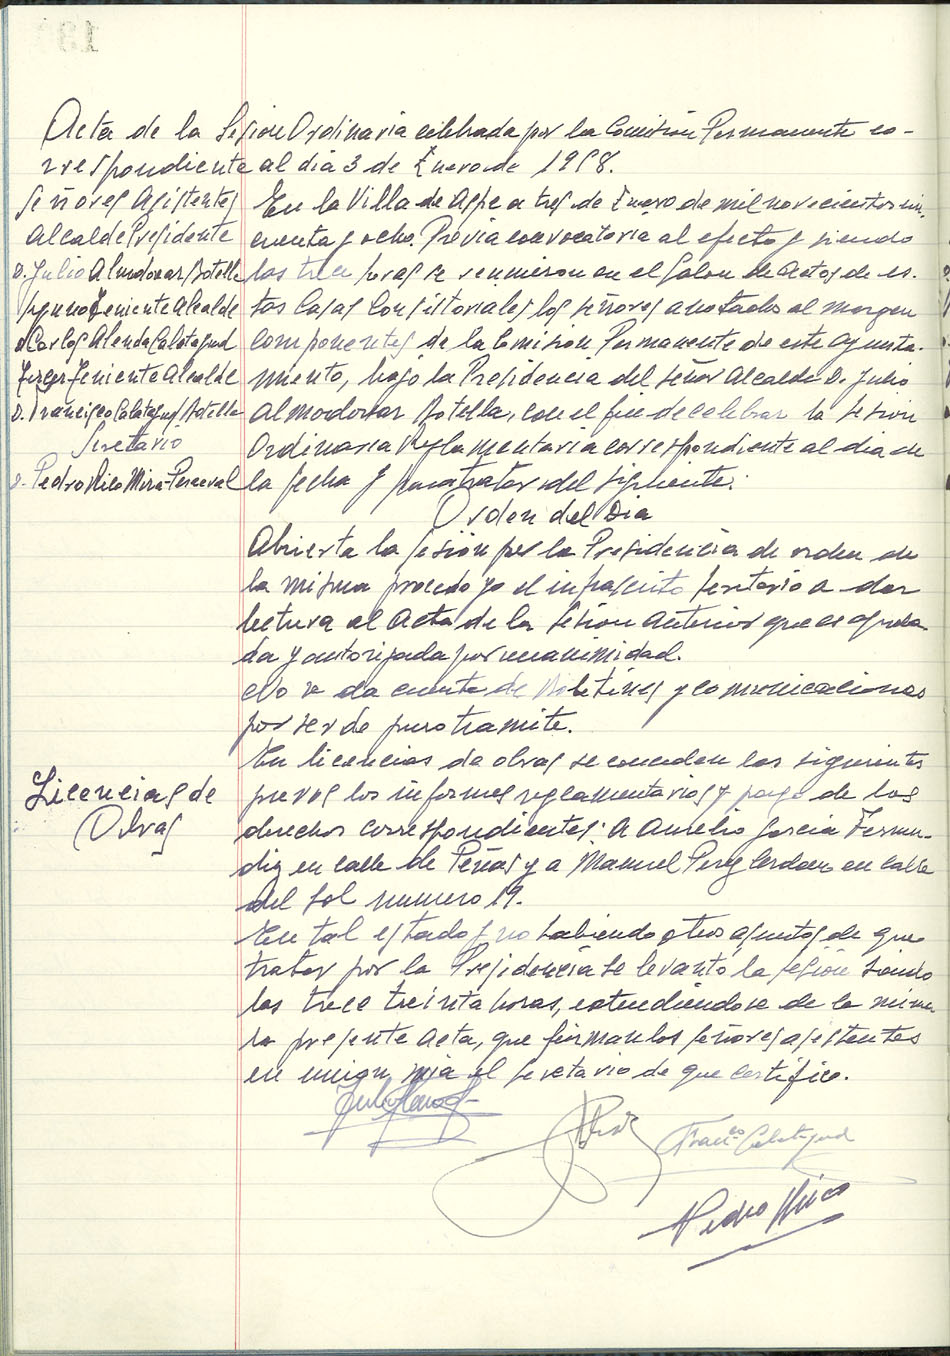 Acta de la Sesion Ordinaria celebrada por la Comision Permanente co-
rrespondiente al dia 3 de Enero de 1958.
Señores Asistentes
Alcalde Presidente
D. Julio Almodovar Botella
Segundo Teniente Alcalde
D. Carlos Alenda Calatayud
Tercer Teniente Alcalde
D. Francisco Calatayud Botella
Secretario
D. Pedro Rico Mira-Perceval
En la Villa de Aspe a tres de Enero de mil novecientos cin-
cuenta y ocho. Previa convocatoria al efecto y siendo
las trece horas se reunieron en el Salon de Actos de es-
tas Casas Consistoriales los señores anotados al margen
componentes de la Comision Permanente de este Ayunta-
miento, bajo la Presidencia del señor Alcalde D. Julio
Almodovar Botella, con el fin de celebrar la sesion
Ordinaria Reglamentaria correspondiente al dia de
la fecha y para tratar del siguiente:
Orden del Dia
Abierta la sesión por la Presidencia de orden de
la misma procedo yo el infrascrito Secretario a dar
lectura al Acta de la Sesion anterior que es aproba-
da y autorizada por unanimidad.
No se da cuenta de Boletines y comunicaciones
por ser de puro tramite.
Licencias de
Obras
En licencias de obras se conceden las siguientes
previos los informes reglamentarios y pago de los
derechos correspondientes: A Aurelio Garcia Fernan-
diz en calle de Peñas y a Manuel Perez Cerdan en calle
del Sol numero 19.
En tal estado y no habiendo otros asuntos de que
tratar por la Presidencia se levantó la sesion siendo
las trece treinta horas, extendiendose de la misma
la presente Acta, que firman los señores asistentes
en union mia el Secretario de que certifico.
Francco Calatayud
Pedro Rico